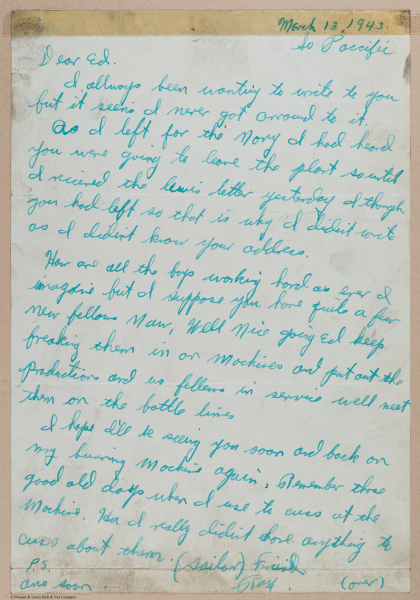 March 12, 1943.
So Paccific
Dear Ed.
I allways been wanting to write to you
but it seems I never got arround to it.
as I left for the Navy I had heard
you were going to leave the plant so until
I recieved the lewis letter yesterday I though
you had left so that is why I did'nt write
as I did'nt know your address.
How are all the boys working hard as ever I
imagaine but I suppose you have quite a few
new fellows Now, Well Nice going Ed keep
breaking them in on Machines and put out the
Productions and us fellows in service well meet
them on the battle lines
I hope I'll be seeing you soon and back on
my burring Machine again. Remember those
good old days when I use to cuss at the
Machine. Ha I really did'nt have anything to
cuss about then. (Sailor) Friend
P.S.
ans soon
(over)